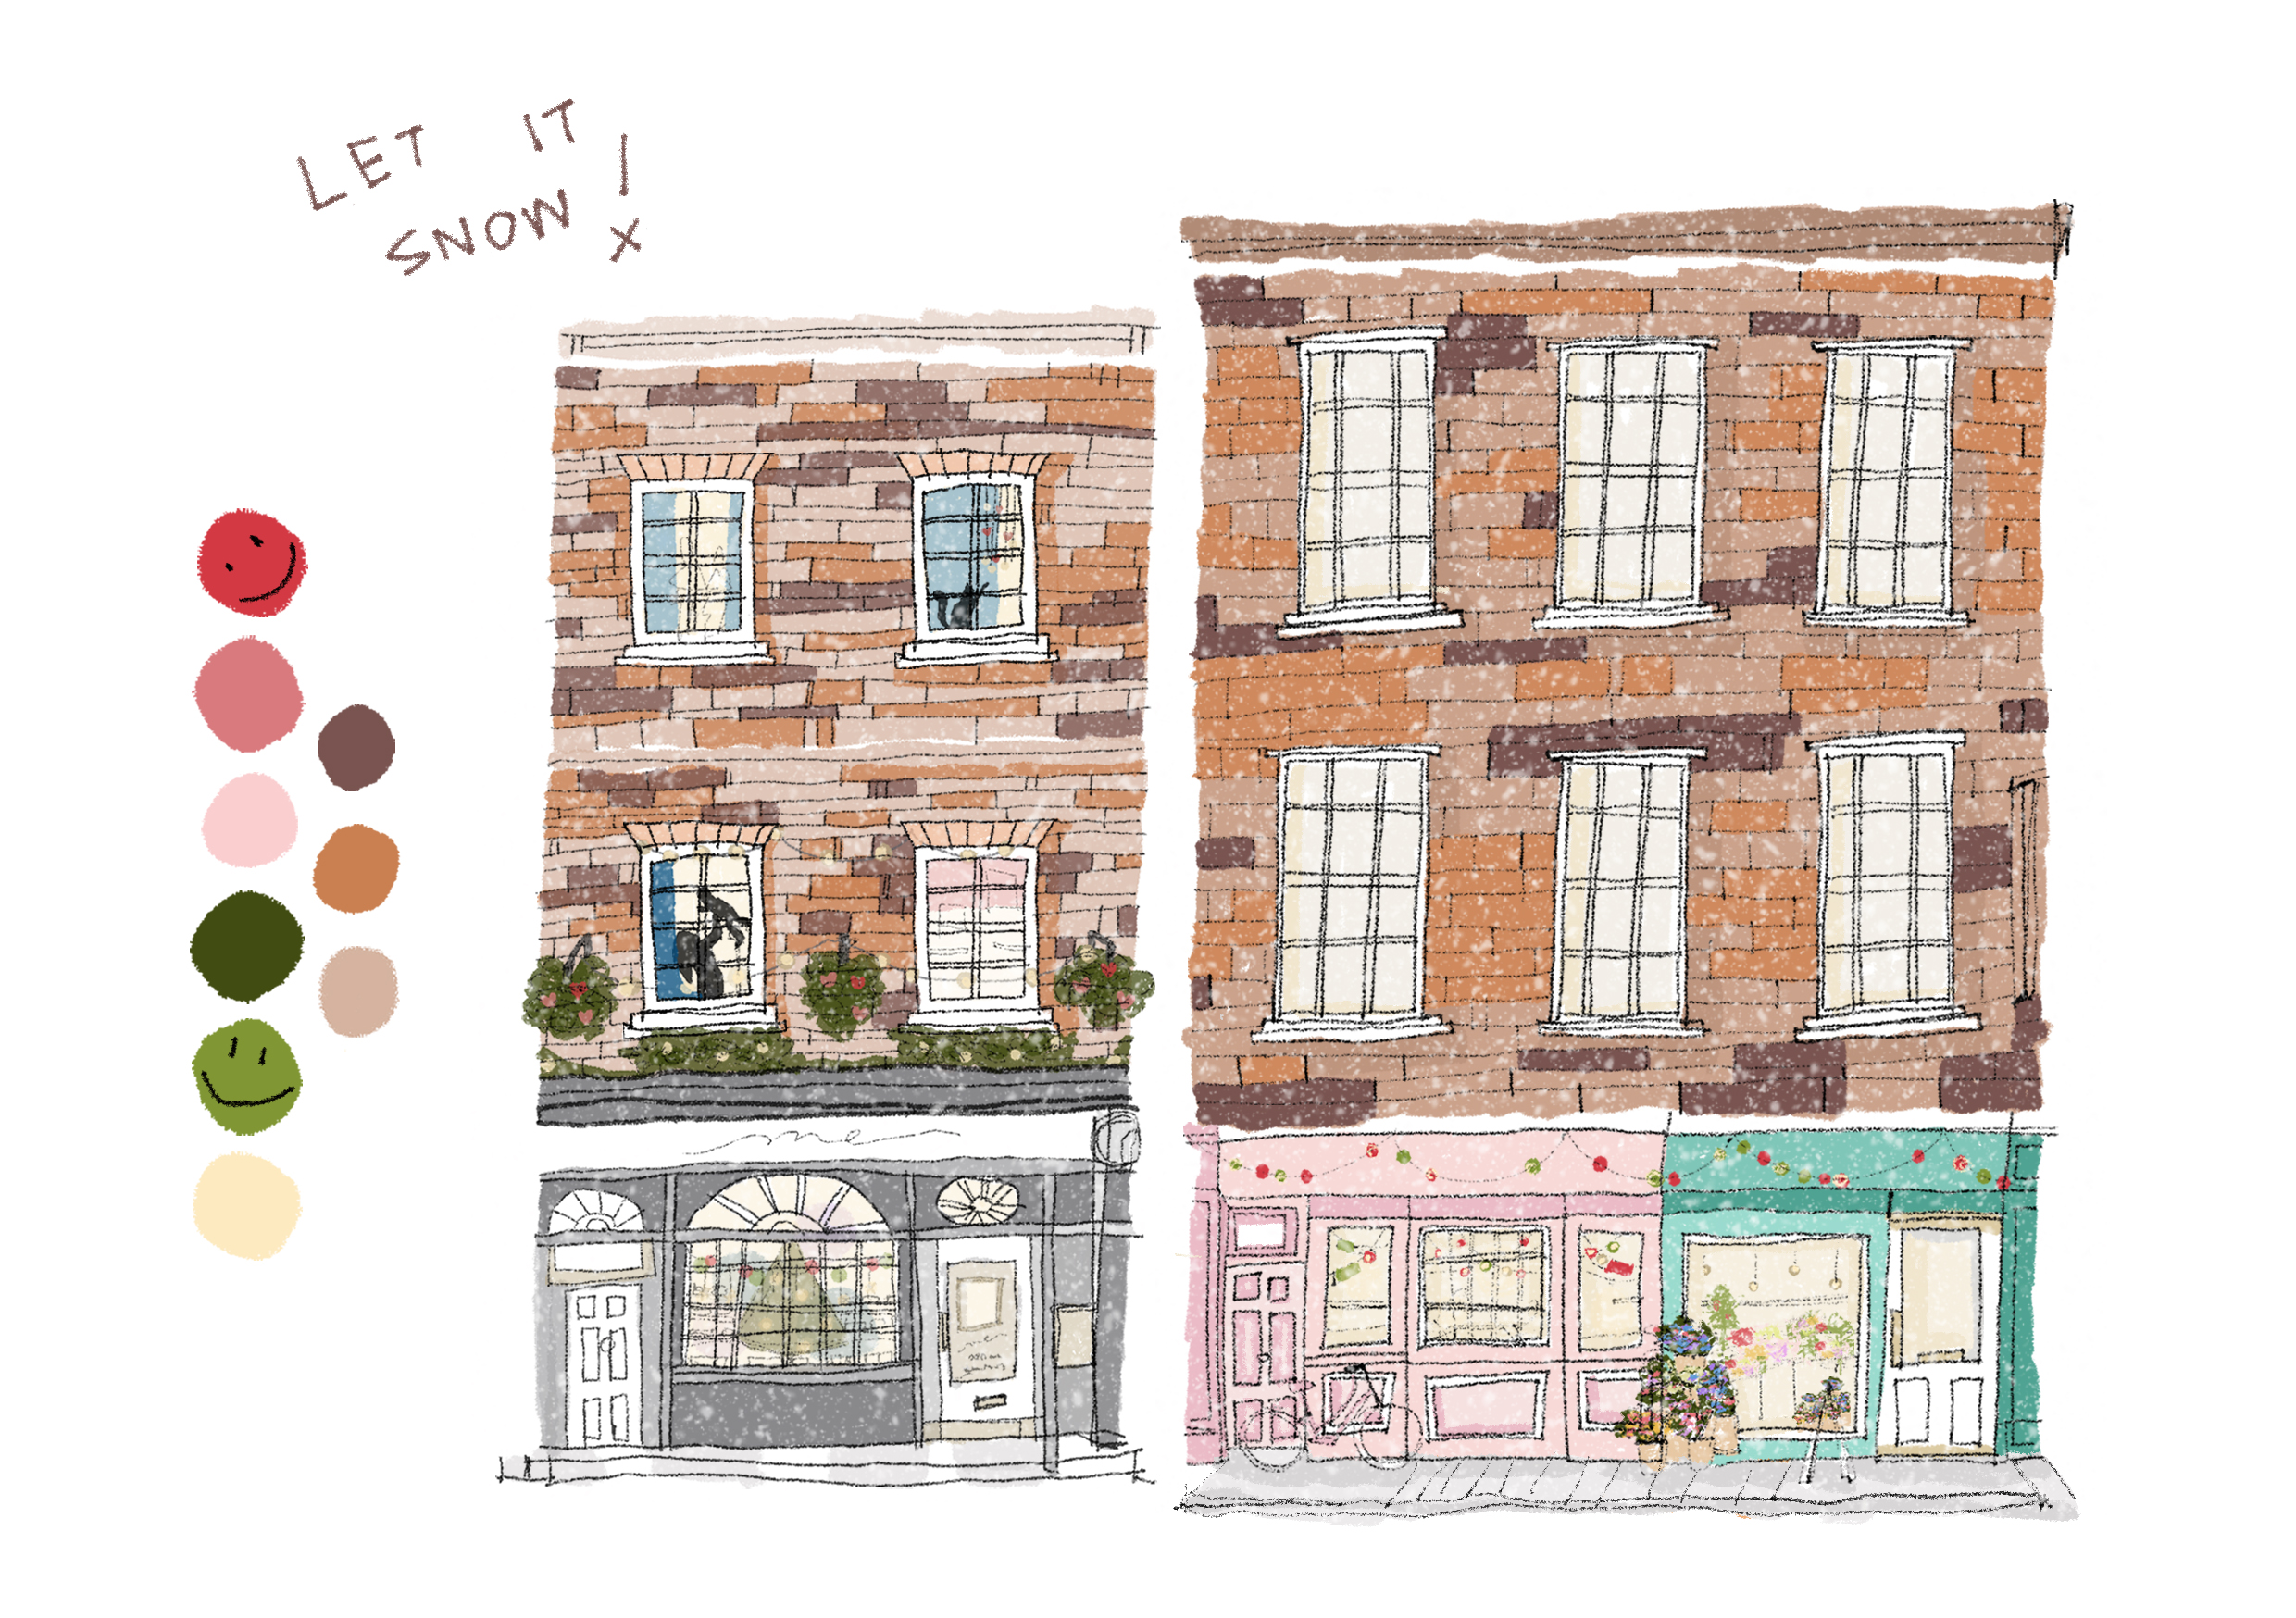 LET IT
SNOW!
x